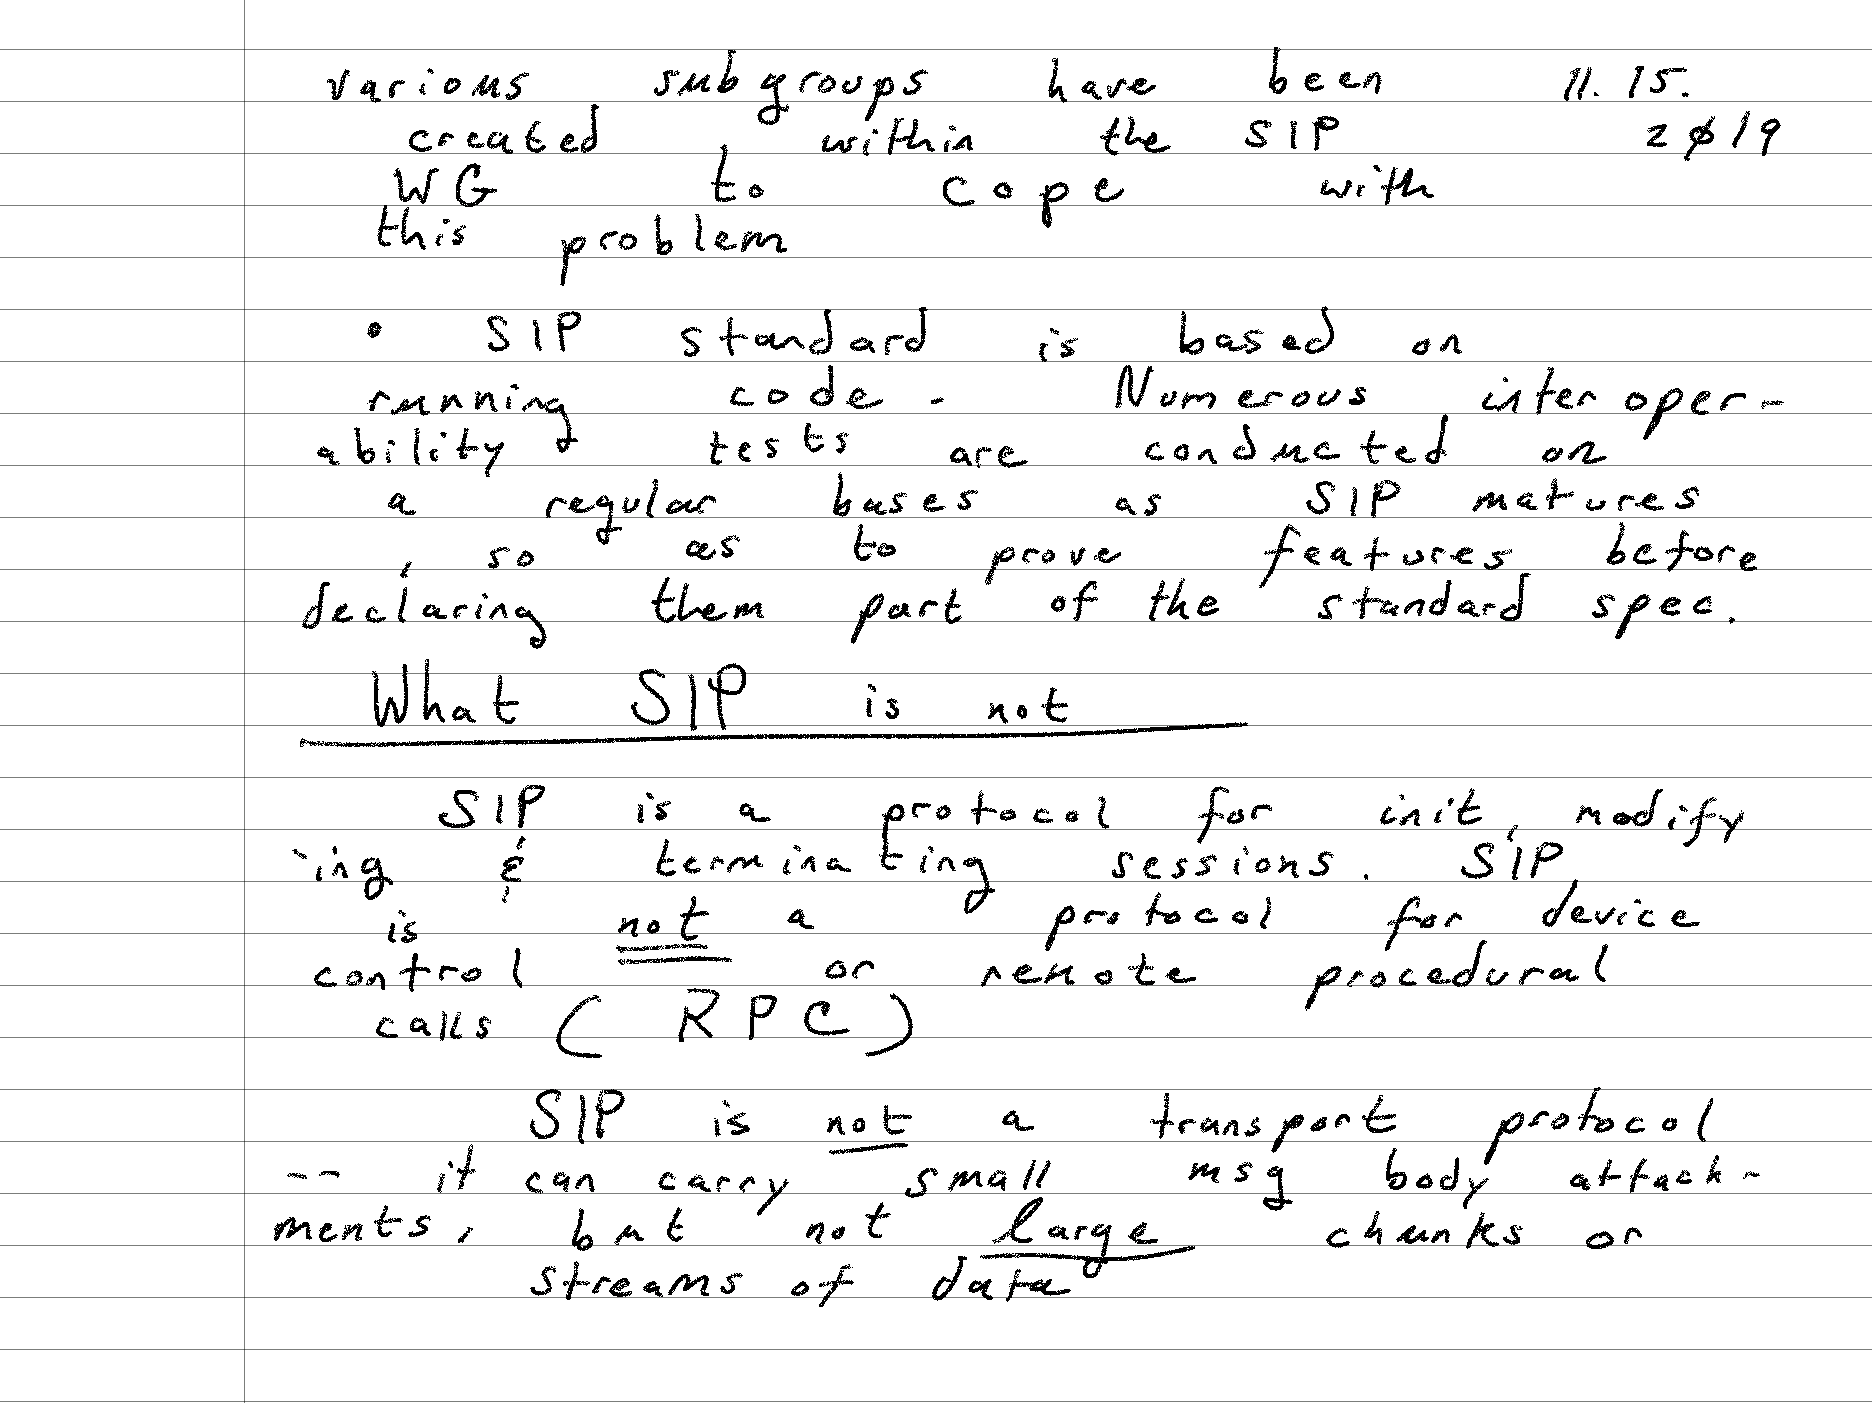 various subgroups have been 11. 15.
created within the SIP 2Ø19
WG to cope with
this problem
• SIP standard is based on
running code. Numerous interoper-
ability tests are conducted on
a regular bases as SIP matures
, so as to prove features before
declaring them part of the standard spec.
What SIP is not
SIP is a protocol for init, modify
-ing & terminating sessions. SIP
is not a protocol for device
control or remote procedural
calls ( RPC )
SIP is not a transport protocol
-- it can carry small msg body attach-
ments, but not large chunks or
streams of data